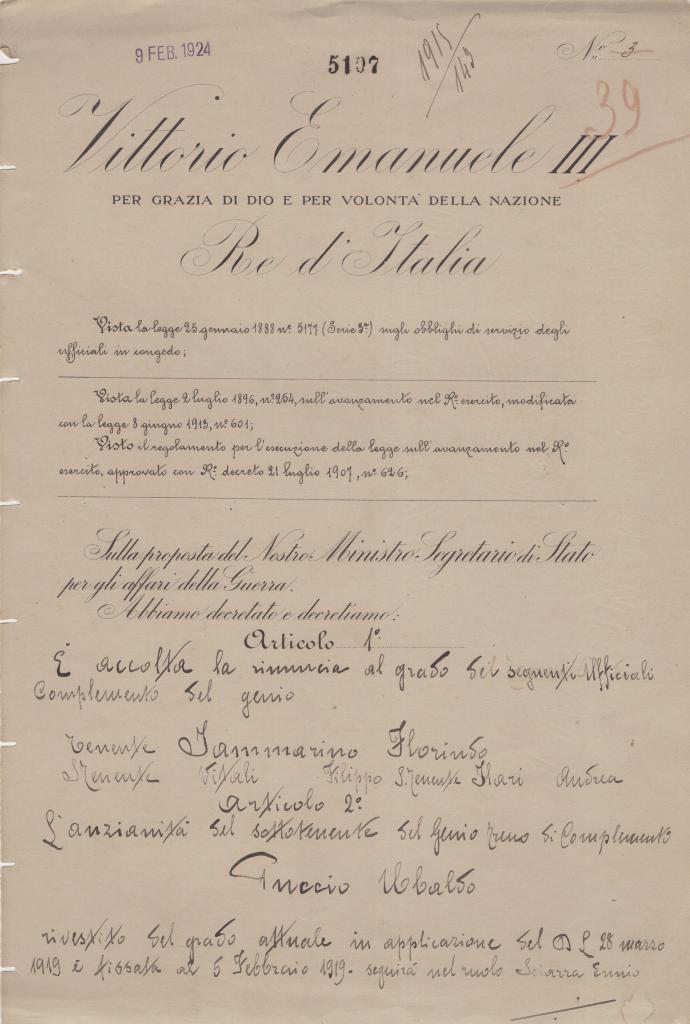 9 FEB. 1924
5107
1915/143
N.º 3
39
Vittorio Emanuele III
PER GRAZIA DI DIO E PER VOLONTA' DELLA NAZIONE
Re d'Italia
Vista la legge 25 gennaio 1888 nº 5177 (Serie 3ª) sugli obblighi di servizio degli
ufficiali in congedo;
Vista la legge 2 luglio 1896, nº 254, sull'avanzamento nel Rº esercito, modificata
con la legge 8 giugno 1913, nº 601;
Visto il regolamento per l'esecuzione della legge sull'avanzamento nel Rº
esercito, approvato con Rº decreto 21 luglio 1907, nº 626;
Sulla proposta del Nostro Ministro Segretario di Stato
per gli affari della Guerra.
Abbiamo decretato e decretiamo:
Articolo 1º
È accolta la rinuncia al grado dei seguenti Ufficiali
Complemento del genio
Tenente Iammarino Florindo
S.Tenente Vitali Filippo S.Tenente Ilari Andrea
Articolo 2º
L'anzianità del sottotenente del Genio treno di Complemento
Puccio Ubaldo
rivestito del grado attuale in applicazione del D L 28 marzo
1919 è fissata al 5 Febbraio 1919. seguirà nel ruolo Sciarra Ennio